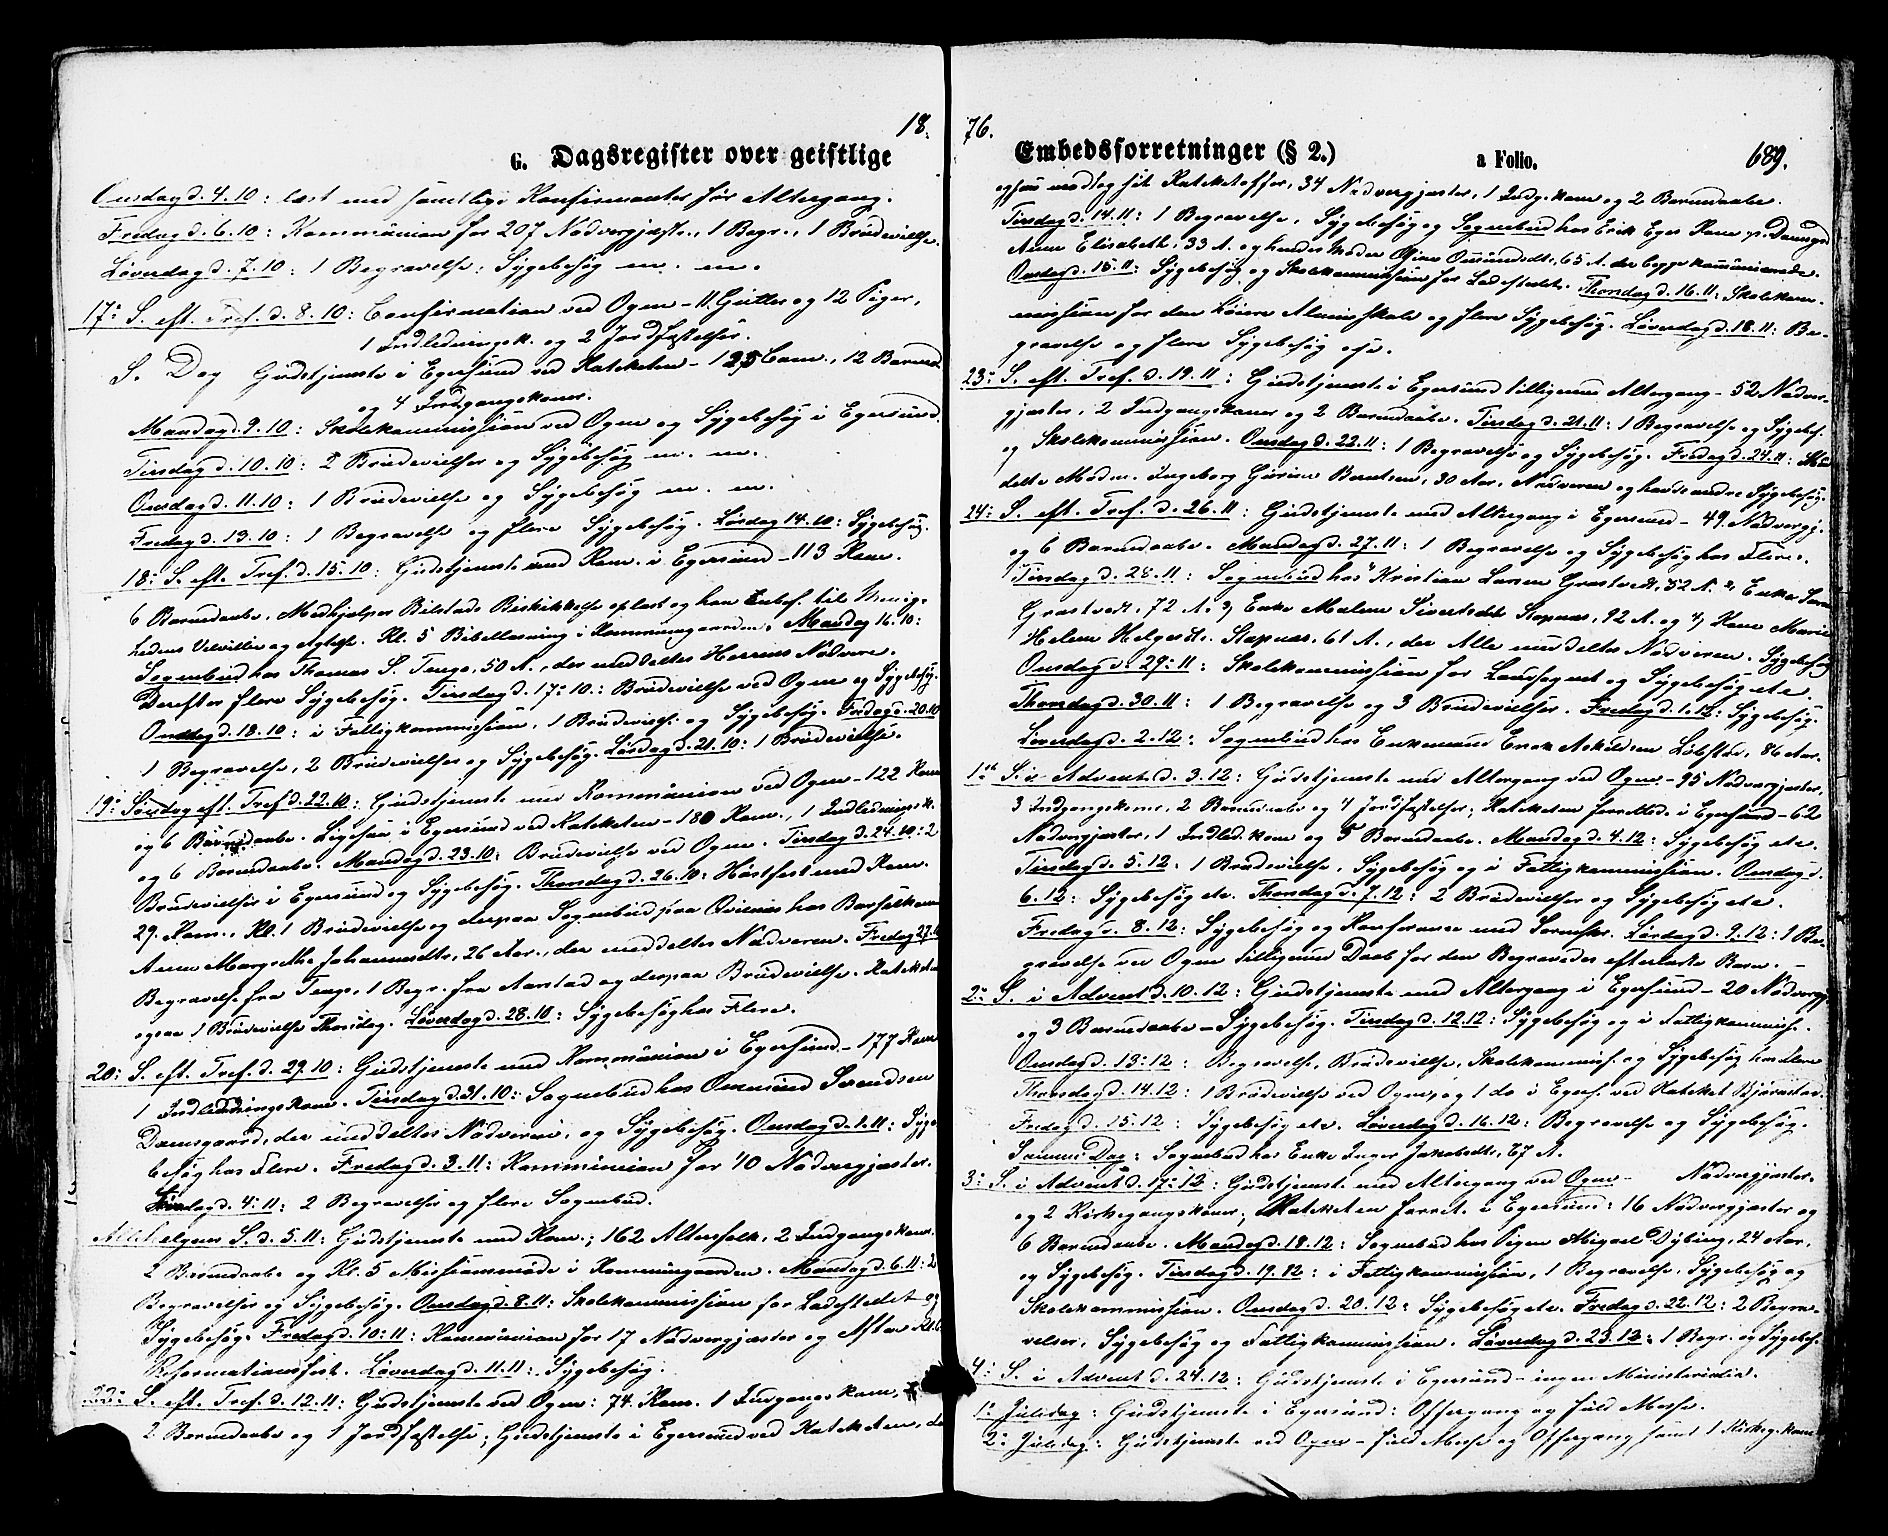 18.
6. Dagsregister over geistlige
Onsdag d. 4.10: læst med samtlige Konfirmanter før Altergang.
Fredag d. 6.10: Kommunion for 207 Nadvergjæste, 1 Begr., 1 Brudevielse.
Løverdag d. 7.10: 1 Begravelse, Sygebesøg m. m.
17: S. eft. Tref. d. 8.10: Confirmation ved Ogne – 11 Gutter og 12 Piger,
1 Indledningsk. og 2 Jordfæstelser.
S. Dag Gudstjeneste i Egersund ved Kateketen – 125 Com., 12 Barned.
og 4 Indgangskoner.
Mandag d. 9.10: Skolekommission ved Ogne og Sygebesøg i Egersund.
Tirsdag d. 10.10: 2 Brudevielser og Sygebesøg m. m.
Onsdag d. 11.10: 1 Brudevielse og Sygebesøg m. m.
Fredag d. 13.10: 1 Begravelse og flere Sygebesøg. Lørsdag 14.10: Sygebesøg.
18: S. eft. Tref. d. 15.10: Gudstjeneste med Kom. i Egersund – 113 Kom.
6 Barnedaabe, Medhjælper Bilstads Beskikkelse oplæst og han anbef. til Menig-
hedens Velvillie og Agtelse. Kl. 5 Bibellæsning i Kommunegaarden. Mandag 16.10:
Sognebud hos Thomas S. Tengs, 50 A., der meddeltes Herrens Nadvere.
Derefter flere Sygebesøg. Tirsdag d. 17.10: Brudevielse ved Ogne og Sygebesøg.
Onsdag d. 18.10: i Fattigkommission, 1 Brudevielse og Sygebesøg. Fredag d. 20.10
1 Begravelse, 2 Brudevielser og Sygebesøg. Lørsdag d. 21.10: 1 Brudevielse.
19: Søndag eft. Tref. d. 22.10: Gudstjeneste med Kommunion ved Ogne – 122 Kom.
og 6 Barnedaabe. Ligesaa i Egersund ved Kateketen – 180 Kom., 1 Indledningsk.
og 6 Barnedaabe. Mandag d. 23.10: Brudevielse ved Ogne. Tirsdag d. 24.10: 2
Brudevielser i Egersund og Sygebesøg. Thorsdag d. 26.10: Høstfest med Kom.
29. Kom., Kl. 1 Brudevielse og derpaa Sognebud paa hos
Anne Margrethe Johannesdtr, 26 Aar, der meddeltes Nadveren. Fredag 27.10
Begravelse fra Tengs, 1 Begr. fra Aarstad og derpaa Brudevielse. Kateketen
ogsaa 1 Brudevielse Thorsdag. Løverdag d. 28.10: Sygebesøg hos Flere.
20: S. eft. Tref. d. 29.10: Gudstjeneste med Kommunion i Egersund – 177 Kom.
1 Indledningskone. Tirsdag d. 31.10: Sognebud hos Ommund Svendsen
Damsgaard, der meddeltes Nadveren, og Sygebesøg. Onsdag d. 1.11: Syge-
besøg hos Flere. Fredag d. 3.11: Kommunion for 40 Nadvergjæster.
Lørsdag d. 4.11: 2 Begravelser og flere Sognebud.
Allehelgens S. d. 5.11: Gudstjeneste med Kom.; 162 Altersfolk, 2 Indgangskoner
2 Barnedaabe og Kl. 5 Missionsmøde i Kommunegaarden. Mandag d. 6.11: 2
Begravelser og Sygebesøg. Onsdag d. 8.11: Skolekommission for Ladestedet og
Sygebesøg. Fredag d. 10.11: Kommunion for 17 Nadvergjæster og Aften Kl. 6
Reformationsfest. Løverdag d. 11.11: Sygebesøg.
22: S. eft. Tref. d. 12.11: Gudstjeneste ved Ogne: 74 Kom. 1 Indgangskone,
2 Barnedaabe og 1 Jordfæstelse; Gudstjeneste i Egersund ved Kateketen, der
76.
Embedsforretninger (§ 2.)
a Folio.
689.
ogsaa modtog sit Kateketoffer, 34 Nadvergjæster, 1 Indg.kone og 2 Barnedaabe.
Tirsdag d. 14.11: 1 Begravelse, Sygebesøg og Sognebud hos Erik Eges Kone p. Damsgd
Anne Elisabeth, 33 A. og hendes Moder Osmundsdtr, 65 A. der begge kommunicerede.
Onsdag d. 15.11: Sygebesøg og Skolekommission for Ladestedet. Thorsdag d. 16.11: Skolekom-
mission for den høiere Almueskole og flere Sygebesøg. Løverdag d. 18.11: Be-
gravelse og flere Sygebesøg
23: S. eft. Tref. d. 19.11: Gudstjeneste i Egersund tilligemed Altergang – 52 Nadver-
gjæster, 2 Indgangskoner og 2 Barnedaabe. Tirsdag d. 21.11: 1 Begravelse og Sygebes.
og Skolekommission. Onsdag d. 22.11: 1 Begravelse og Sygebesøg. Fredag d. 24.11:
delte Madm. Ingeborg Gurine Berntsen, 30 Aar, Nadveren og havde andre Sygebesøg.
24: S. eft. Tref. d. 26.11: Gudstjeneste med Altergang i Egersund – 49 Nadvergj.
og 6 Barnedaabe. Mandag d. 27.11: 1 Begravelse og Sygebesøg hos Flere.
Tirsdag d. 28.11: Sognebud hos Kristian Larsen Gravtvedt, 52 A. 2) Enke
Gravtvedt, 72 A. 3) Enke Malene Sivertsdtr Stapnæs, 92 A. og 4) Kone Marie
Helene Helgesdtr. Stapnæs, 61 A., der Alle meddeltes Nadveren. Sygebesøg
Onsdag d. 29.11: Skolekommission for Landsognet og Sygebesøg etc.
Thorsdag d. 30.11: 1 Begravelse og 3 Brudevielser. Fredag d. 1.12: Sygebesøg.
Løverdag d. 2.12: Sognebud hos Enkemand Erik Askildsen 86 Aar.
1ste S. i Advent d. 3.12: Gudstjeneste med Altergang ved Ogne – 95 Nadvergjæster,
3 Indgangskone, 2 Barnedaabe og 4 Jordfæstelser; Kateketen forretted. i Egersund – 62
Nadvergjæster, 1 Indled.kone og 5 Barnedaabe. Mandag d. 4.12: Sygebesøg etc.
Tirsdag d. 5.12: 1 Brudevielse, Sygebesøg og i Fattigkommission. Onsdag d.
6.12: Sygebesøg etc. Thorsdag d. 7.12: 2 Brudevielser og Sygebesøg etc.
Fredag d. 8.12: Sygebesøg og Konferance med Lørsdag d. 9.12: 1 Be-
gravelse ved Ogne tilligemed Daab for den Begravedes efterladte Barn. –
2: S. i Advent d. 10.12: Gudstjeneste med Altergang i Egersund – 20 Nadvergj.
og 3 Barnedaabe – Sygebesøg. Tirsdag d. 12.12: Sygebesøg og i Fattigkommiss.
Onsdag d. 13.12: Begravelse, Brudevielse, Skolekommiss. og Sygebesøg hos Flere
Thorsdag d. 14.12: 1 Brudevielse ved Ogne og 1 do i Egers. ved Kateket Bjørnstad.
Fredag d. 15.12: Sygebesøg etc. Løverdag d. 16.12: Begravelse og Sygebesøg.
Samme Dag: Sognebud hos Enke Inger Jakobsdtr, 67 A.
3: S. i Advent d. 17.12: Gudstjeneste med Altergang ved Ogne – Nadvergjæster
og 2 Kirkegangskoner; Kateketen forret. i Egersund: 16 Nadvergjæster og
6 Barnedaabe. Mandag d. 18.12: Sognebud hos Pigen Abigael Dybing, 24 Aar,
og Sygebesøg. Tirsdag d. 19.12: i Fattigkommission, 1 Begravelse, Sygebesøg og
Skolekommission. Onsdag d. 20.12: Sygebesøg etc. Fredag d. 22.12: 2 Begra-
velser, Sygebesøg og Fattigkommission. Løverdag d. 23.12: 1 Begr. og Sygebes.
4: S. i Advent d. 24.12: Gudstjeneste i Egersund – ingen Ministerialia.
1: Juledag: Gudstjeneste i Egersund: Offergang og fuld Messe.
2: Juledag: Gudstjeneste ved Ogne – fuld Messe og Offergang samt 1 Kirkeg.kone